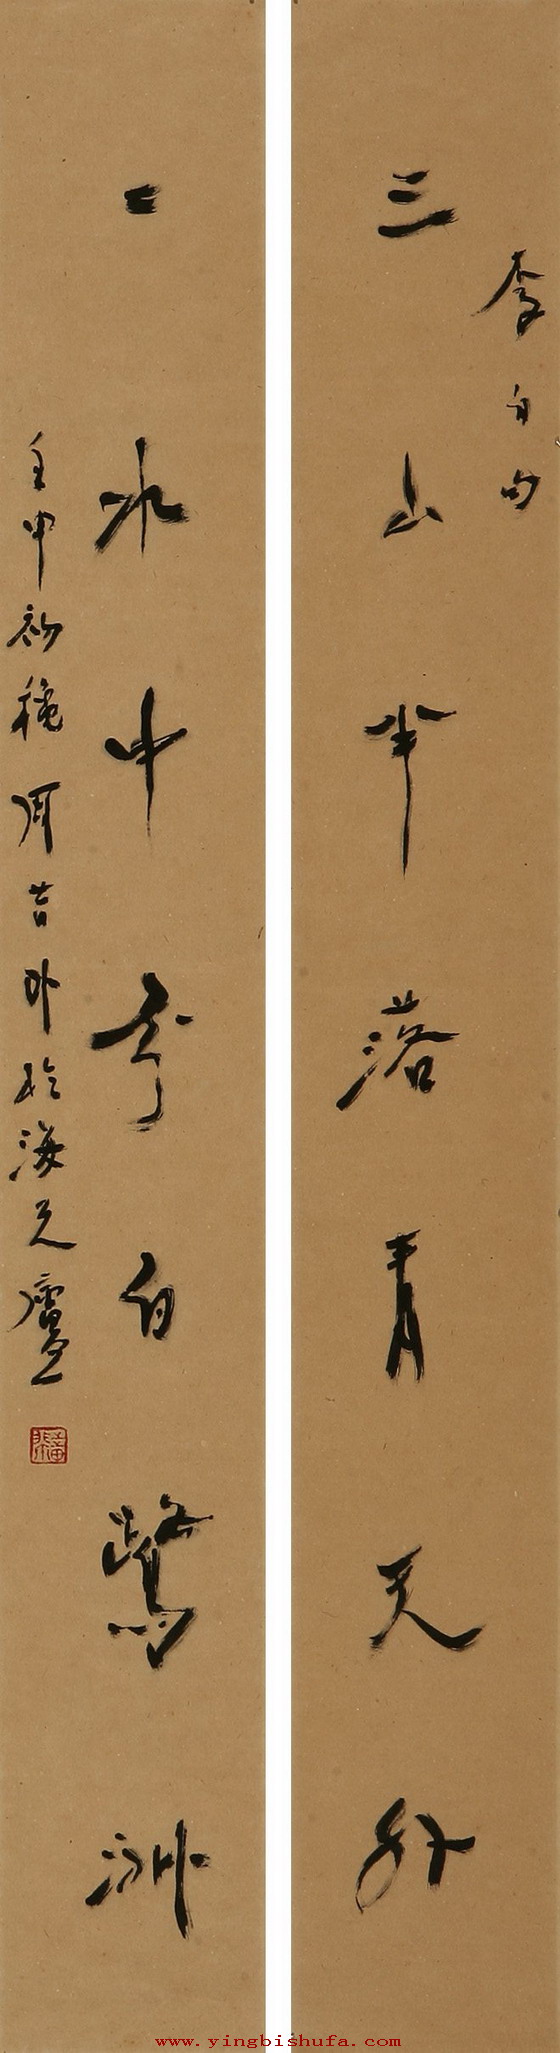 李白句
三山半落青天外
二水中分白鷺洲
壬申初穐周昔非於海天廬
www.yingbishufa.com